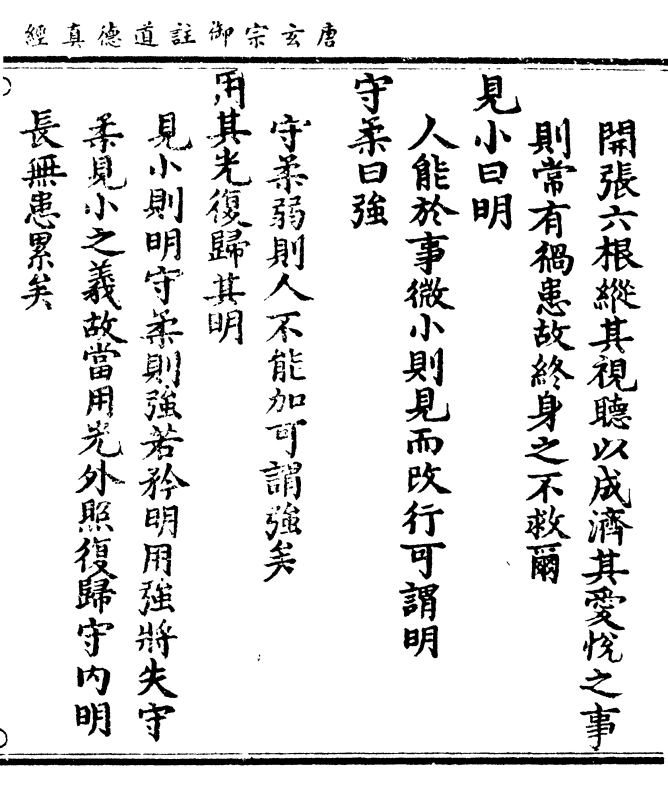 唐玄宗御註道德真經
開張六根縱其視聽以成濟其愛悅之事
則常有禍患故終身之不救爾
見小曰明
人能於事微小則見而改行可謂明
守柔曰強
守柔弱則人不能加可謂強矣
用其光復歸其明
見小則明守柔則強若矜明用強將失守
柔見小之義故當用光外照復歸守內明
長無患累矣